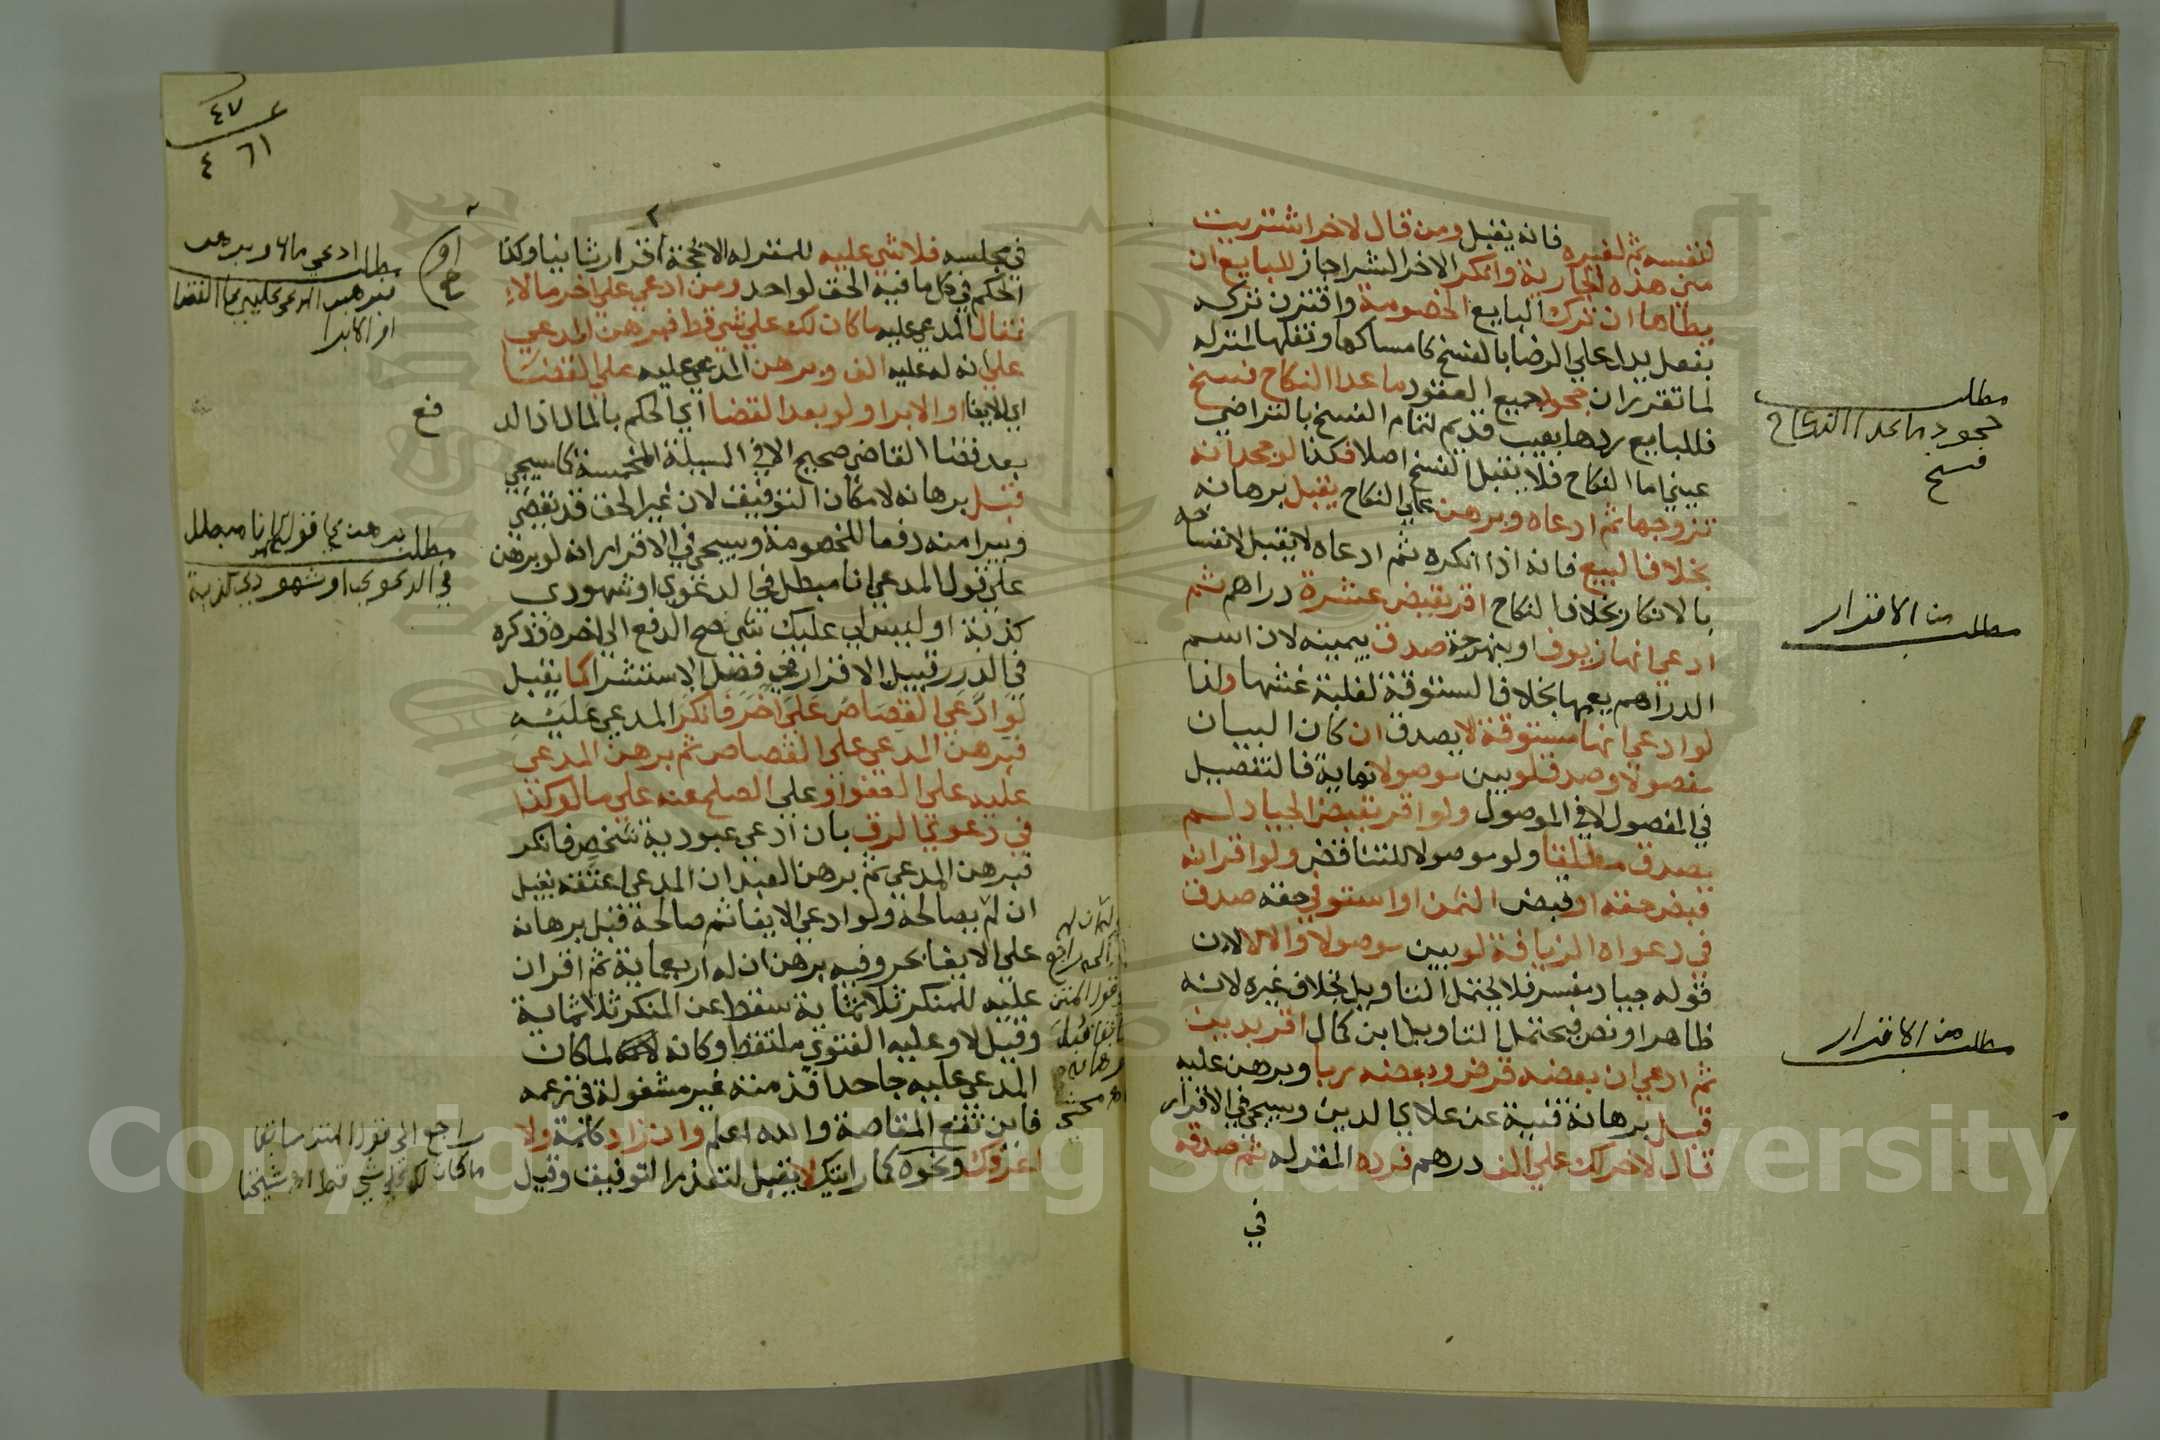 لنفسه ثم لغيره فانه يقبل ومن قال لاخر اشتريت
مني هذه الجارية وانكر الاخر الشرا جاز للبايع ان
يطاها ان ترك البايع الخصومة واقترن تركه
بفعل يدل علي الرضا بالفسخ كامساكها ونقلها لمنزله
لما تقرر ان جحود جميع العقود ما عدا النكاح فسخ
فللبايع ردها بعيب قديم لتمام الفسخ بالتراضي
عيني اما النكاح فلا يقبل الفسخ اصلا فكذا لو جحد انه
تزوجها ثم ادعاه وبرهن علي النكاح يقبل برهانه
بخلاف البيع فانه اذا انكره ثم ادعاه لا يقبل لانفساخه
بالانكار بخلاف النكاح اقر بقبض عشرة دراهم ثم
ادعي انها زيوف او بنهرجة صدق بيمينه لان اسم
الدراهم يعمها بخلاف الستوقة لغلبة غشها ولذا
لو ادعي انها ستوقة لا يصدق ان كان البيان
مفصولا وصدق لو بين موصولا نهاية فالتفصيل
في المفصول لا في الموصول ولو اقر بقبض الجياد لم
يصدق مطلقا ولو موصولا للتناقض ولو اقر انه
قبض حقه او قبض الثمن او استوفي حقه صدق
في دعواه الزيافة لو بين موصولا والا لا لان
قوله جياد مفسر فلا يحتمل التاويل بخلاف غيره لانه
ظاهر او نص فيحتمل التاويل ابن كمال اقر بدين
ثم ادعي ان بعضه قرض وبعضه ربا وبرهن عليه
قبل برهانه قنية عن علاي الدين وسيجي في الاقرار
قال لاخر لك علي الف درهم فرده المقر له ثم صدقه
في
مطلب
جحود ما عدا النكاح
فسخ
مطلب من الاقرار
مطلب من الاقرار
في مجلسه فلا شي عليه للمقر له الا بحجة او اقرار ثانيا وكذا
الحكم في كل ما فيه الحق لواحد ومن ادعي علي اخر مالا
فقال المدعي عليه ما كان لك علي شي قط فبرهن المدعي
علي انه له عليه الف وبرهن المدعي عليه علي القضا
اي الايفا او الابرا ولو بعد القضا اي الحكم بالمال اذ الد
بعد قضا القاضي صحيح الا في المسيلة المخمسة كما سيجي
قبل برهانه لامكان التوفيق لان غير الحق قد يقضي
ويبرا منه دفعا للخصومة وسيجي في الاقرار انه لو برهن
علي قول المدعي انا مبطل في الدعوي او شهودي
كذبة او ليس لي عليك شي صح الدفع الي اخره وذكره
في الدرر قبيل الاقرار في فصل الاستشرا كما يقبل
لو ادعي القصاص علي اخر فانكر المدعي عليه
فبرهن المدعي علي القصاص ثم برهن المدعي
عليه علي العفو او علي الصلح عنه علي مال وكذا
في دعوي الرق بان ادعي عبودية شخص فانكر
فبرهن المدعي ثم برهن العبد ان المدعي اعتقه يقبل
ان لم يصالحه ولو ادعي الايفا ثم صالحه قبل برهانه
علي الايفا بحر وفيه برهن ان له اربعماية ثم اقر ان
عليه للمنكر ثلاثماية سقط عن المنكر ثلاثماية
وقيل لا وعليه الفتوي ملتقط وكانه لما كان
المدعي عليه جاحدا فذمته غير مشغولة في زعمه
فاين تقع المقاصة والله اعلم وان زاد كلمة ولا
اعرفك ونحوه كما رايتك لا يقبل لتعذر التوفيق وقيل
٤٧
٤ ٦١
مطلب ادعي مالا وبرهن
فبرهن المدعي عليه علي القضا
او الابرا
فع
مطلب برهن علي قول المدعي انا مبطل
في الدعوي او شهودي كذبة
راجع الي قول المتن سابقا
ما كان لك علي شي قط اه شيخنا
Copyright © King Saud University